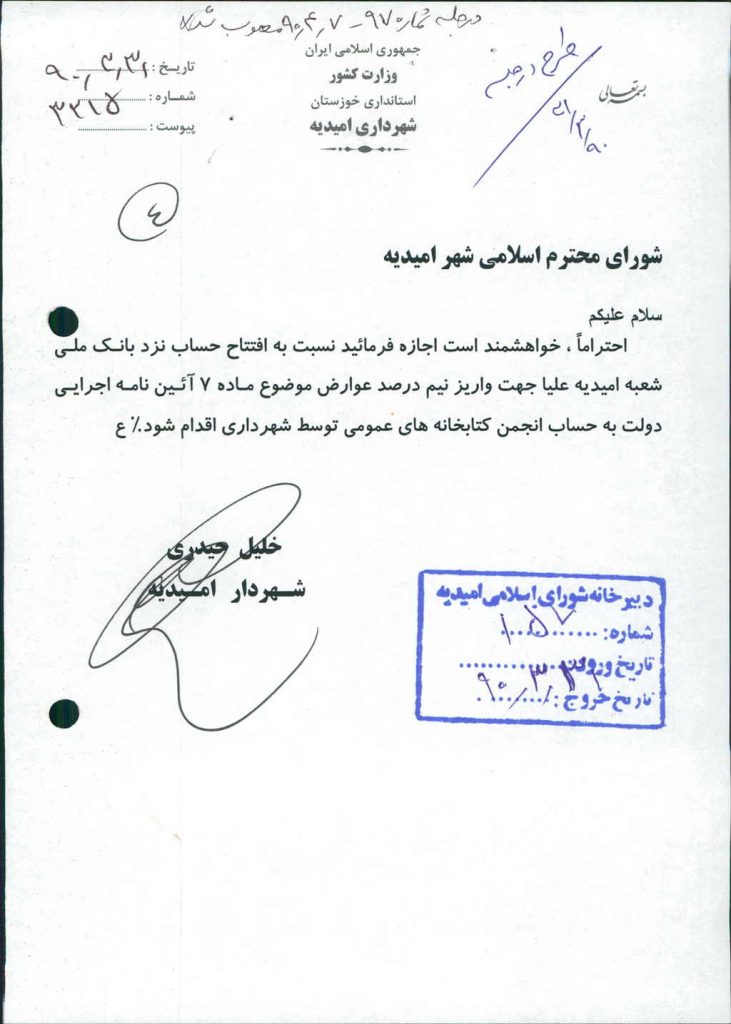 در جلسه شماره ۹۷ - ۹۰,۴,۷ مصوب شد
بسمه تعالی
جمهوری اسلامی ایران
وزارت کشور
استانداری خوزستان
شهرداری امیدیه
تاریخ : ۹۰,۳,۳۱
شماره : ۳۲۱۵
پیوست :
طرح در جلسه
۳۱/۳/۹۰
٤
شورای محترم اسلامی شهر امیدیه
سلام علیکم
احتراماً ، خواهشمند است اجازه فرمائید نسبت به افتتاح حساب نزد بانک ملی
شعبه امیدیه علیا جهت واریز نیم درصد عوارض موضوع ماده ۷ آئین نامه اجرایی
دولت به حساب انجمن کتابخانه های عمومی توسط شهرداری اقدام شود.٪ ع
خلیل حیدری
شهردار امیدیه
دبیرخانه شورای اسلامی امیدیه
شماره: ۱۰۵۷
تاریخ ورود:
تاریخ خروج: ۹۰/۳/۳۱